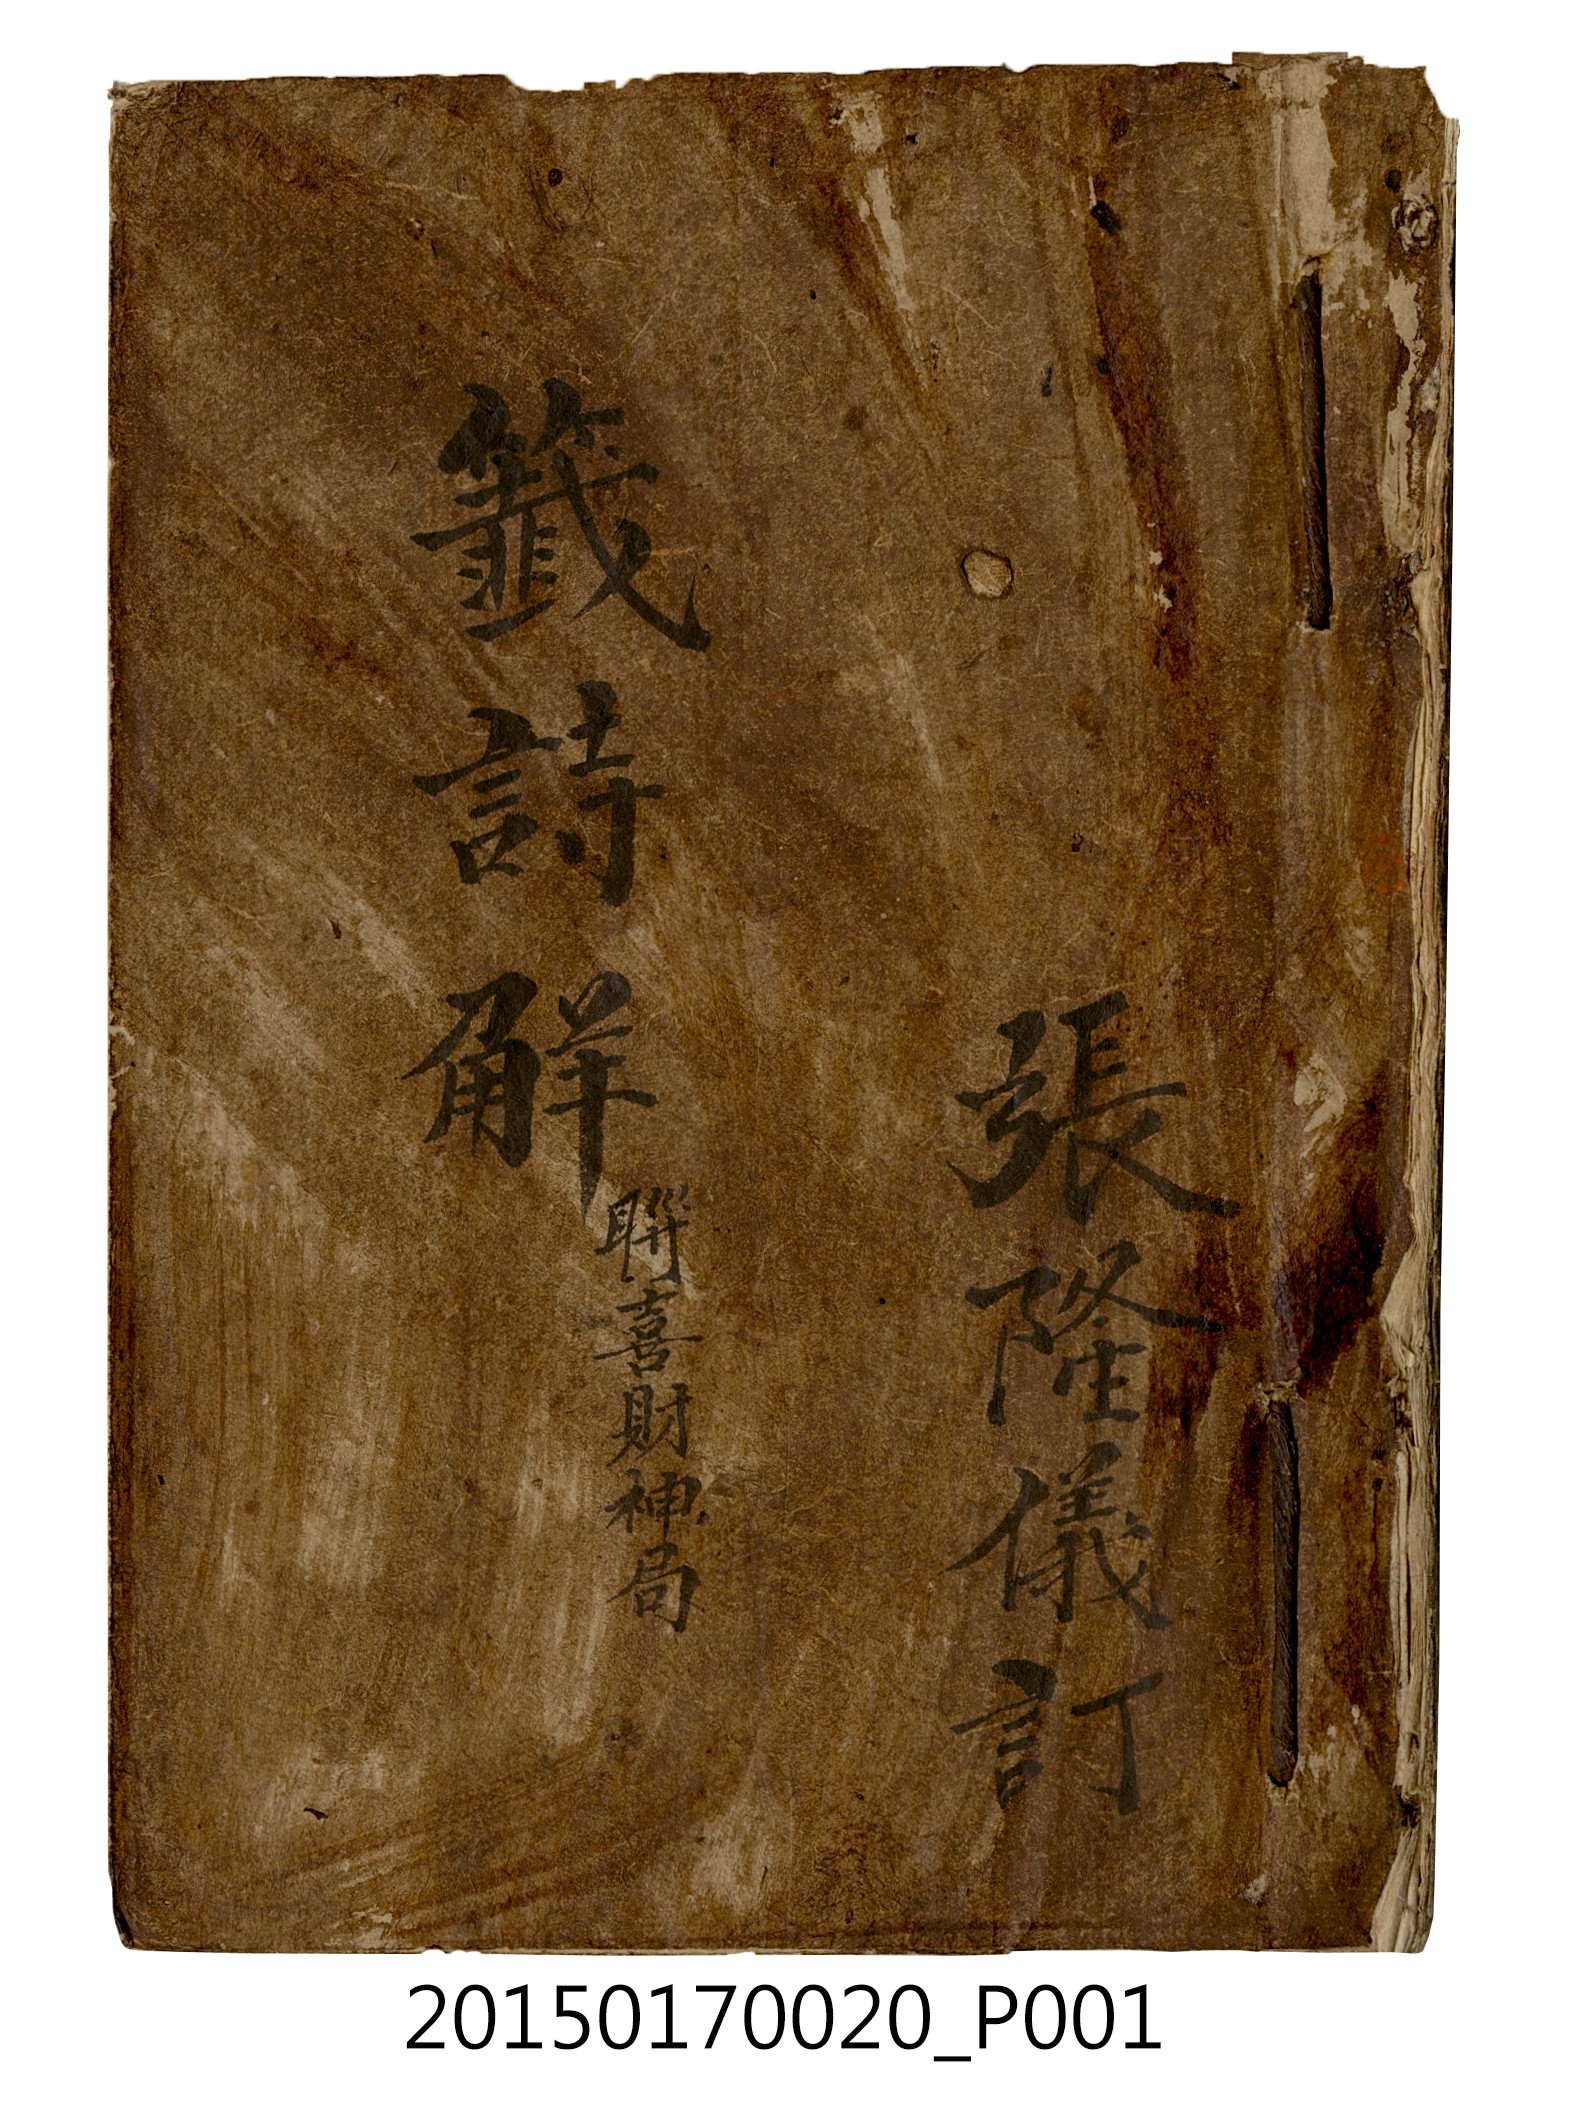 張隆儀訂
籤詩解
聯喜財神局
20150170020_P001